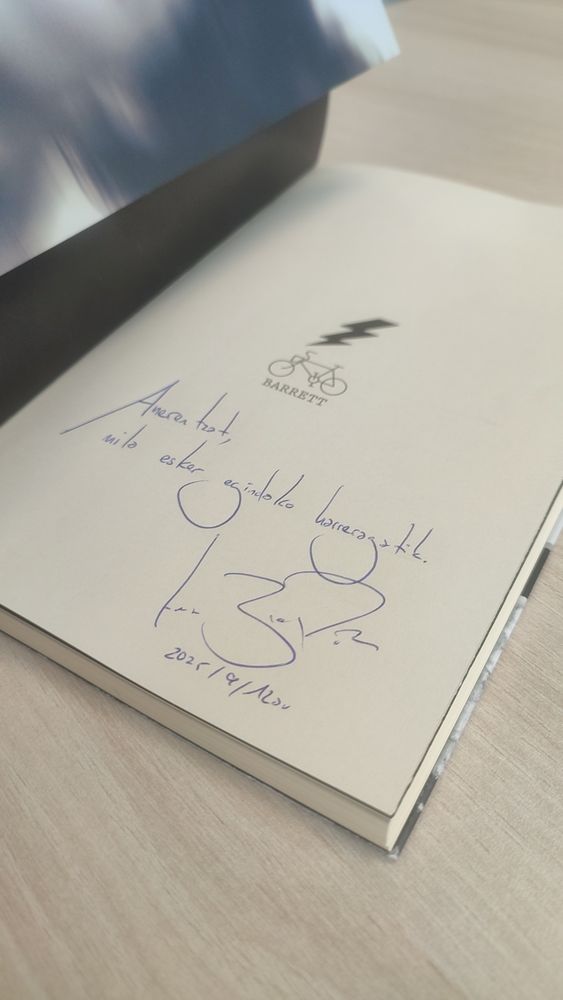 BARRETT
Anerentzat,
mila esker egindako harreragatik.
2025/9/12an